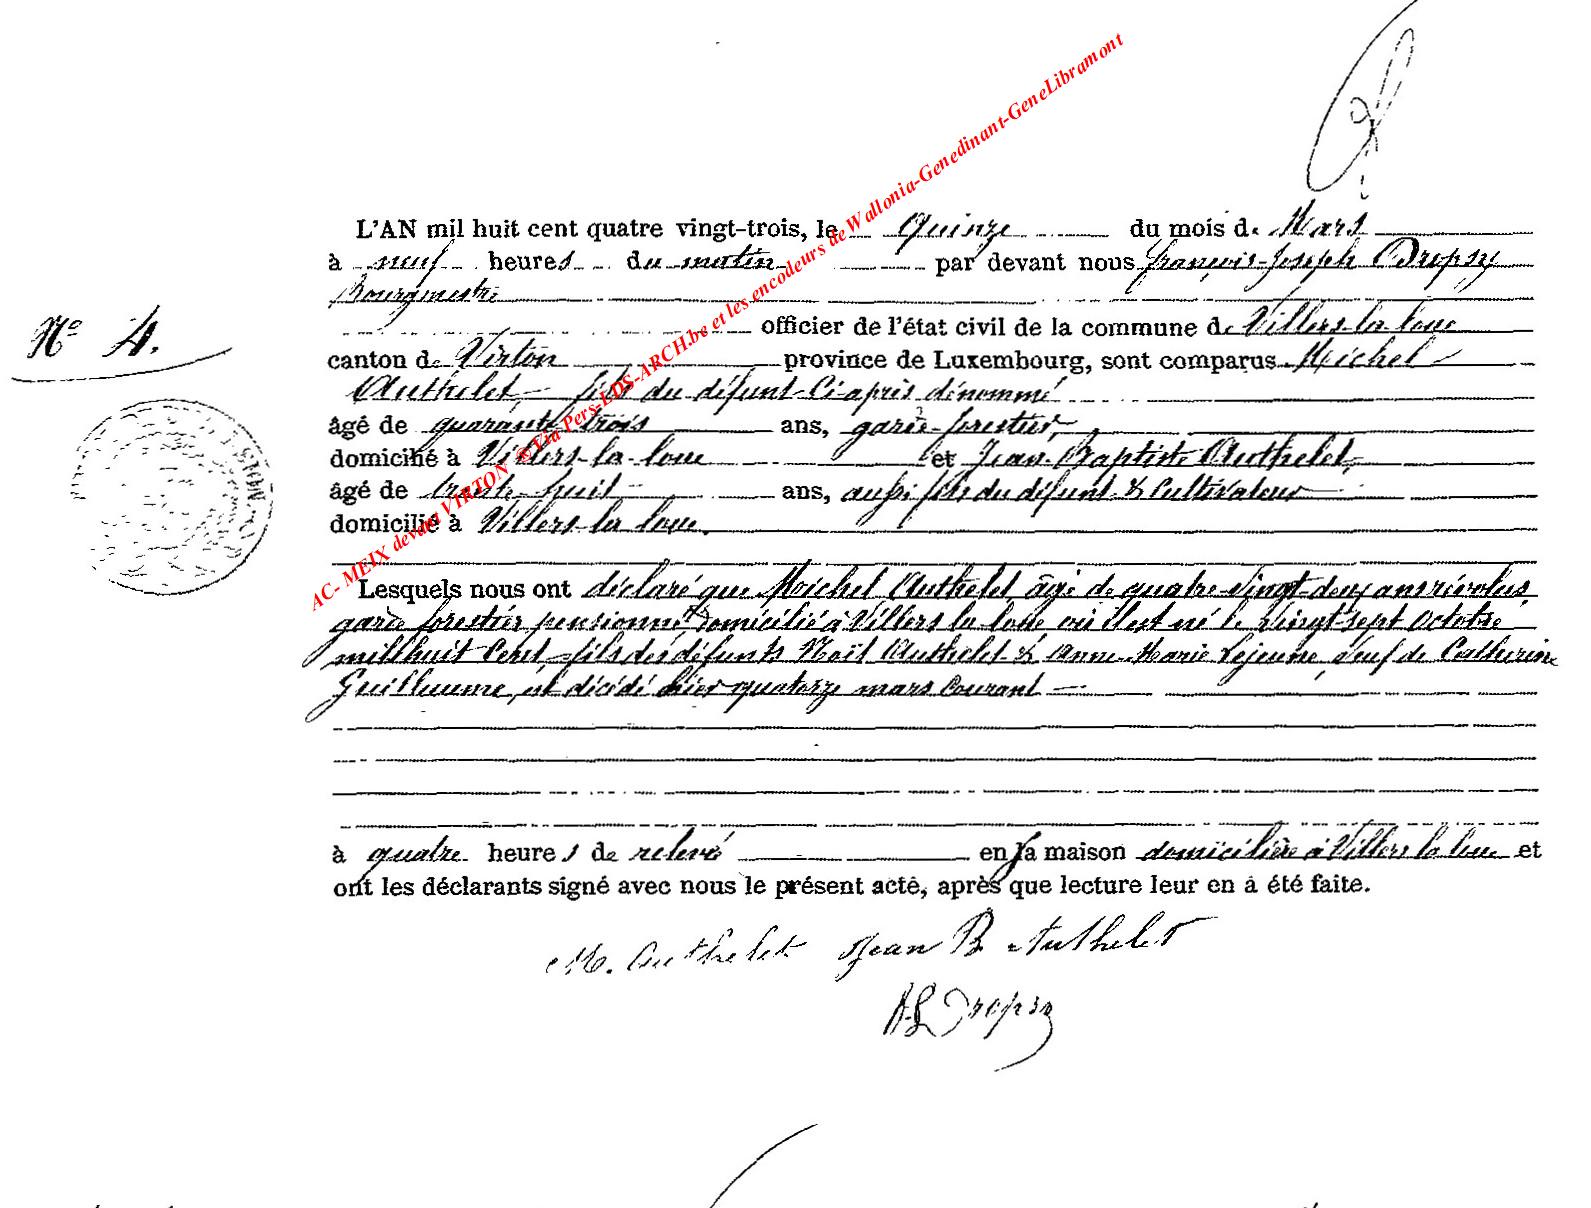 AC- MEIX devant VIRTON ©Via Pers-EDS-ARCH.be et les encodeurs de Wallonia-Genedinant-GeneLibramont
L'AN mil huit cent quatre vingt-trois, le quinze du mois de Mars
à neuf heures du matin par devant nous françois-Joseph Dropsy
Bourgmestre
officier de l'état civil de la commune de Villers-la-loue
N° 4.
canton de Virton province de Luxembourg, sont comparus Michel
Authelet, fils du défunt Ci-après dénommé
âgé de quarante-trois ans, garde-forestier,
domicilié à Villers-la-loue et Jean-Baptiste Authelet,
âgé de trente-huit ans, aussi fils du défunt & Cultivateur
domicilié à Villers-la-loue.
Lesquels nous ont déclaré que Michel Authelet, âgé de quatre-vingt-deux ans révolus,
garde forestier pensionné, domicilié à Villers la loue où il est né le vingt-sept Octobre
mil huit Cent, fils des défunts Noël Authelet & Anne-Marie Lejeune, veuf de Catherine
Guillaume, est décédé hier quatorze mars Courant
à quatre heures de relevé en sa maison domicilière à Villers la loue et
ont les déclarants signé avec nous le présent acte, après que lecture leur en a été faite.
M. Authelet Jean B Authelet
Dropsy